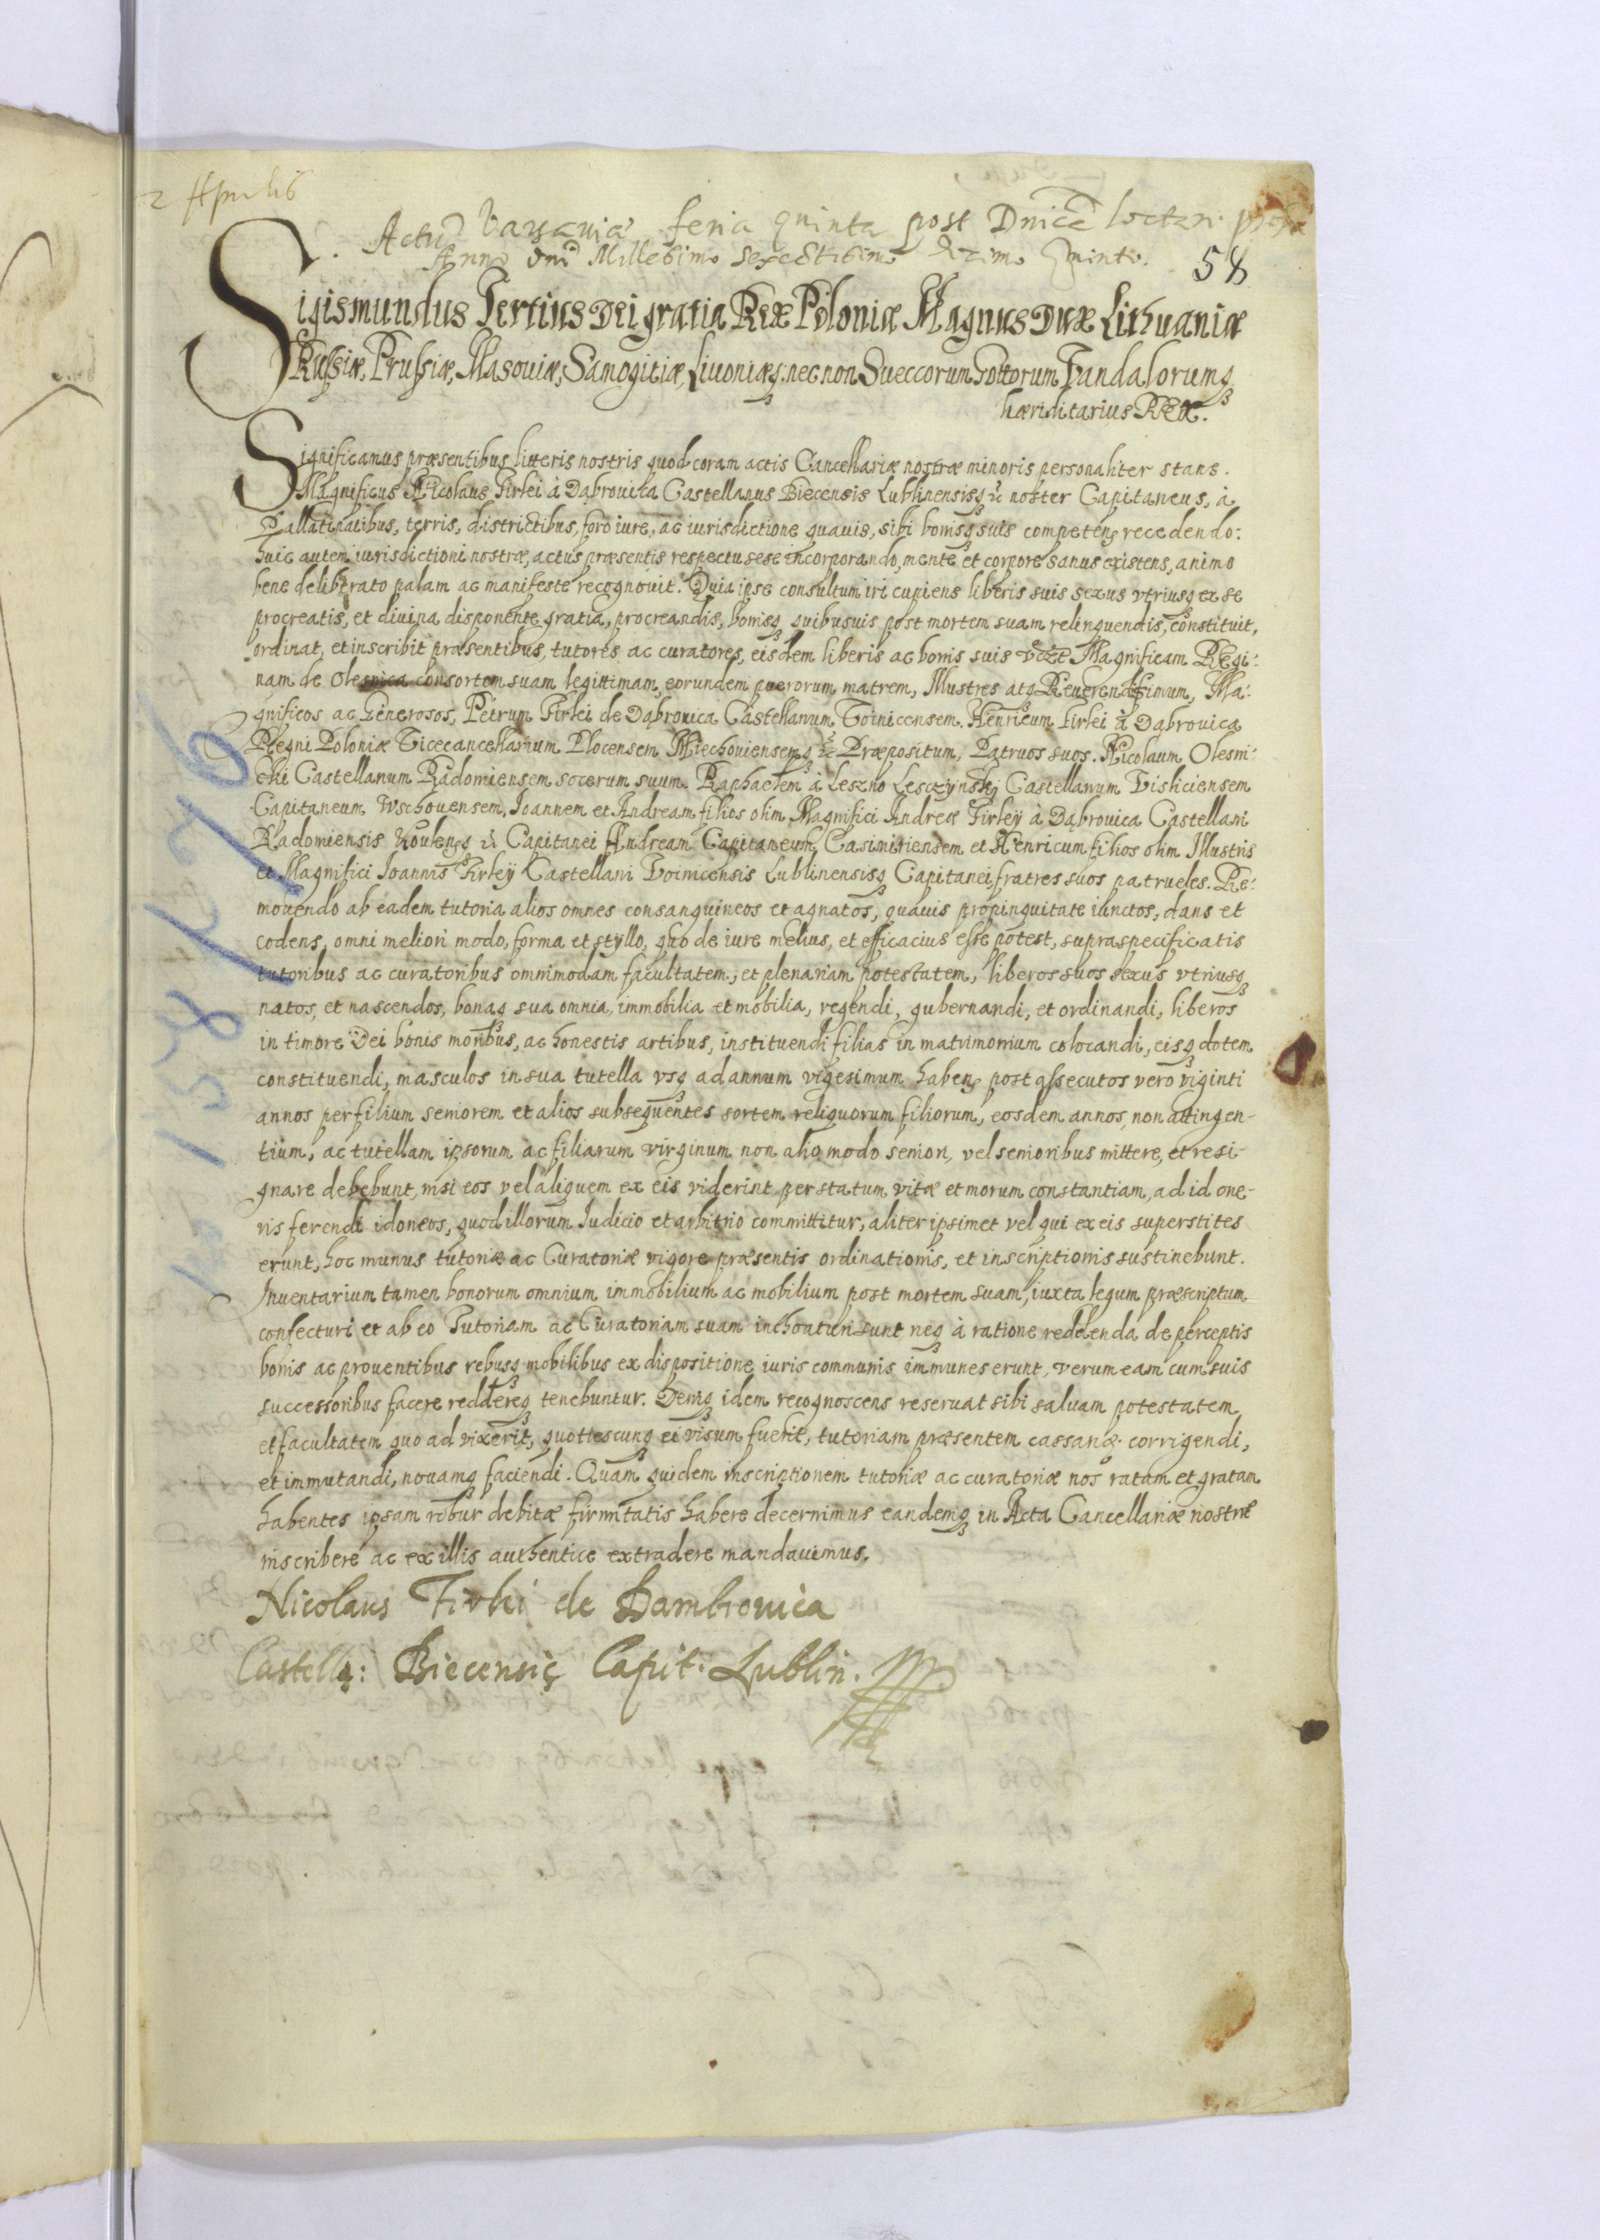 2 Aprilis
Actu Varsaviæ feria quinta post Dnicā Laetare
Anno Dni Millesimo Sexcētesimo Decimo Quinto.
58
Sigismundus Tertius Dei gratia Rex Poloniæ Magnus Dux Lithuaniæ
Russiæ, Prussiæ, Masoviæ, Samogitiæ, Livoniæq; nec non Sueccorum Gottorum Vandalorumq;
hæriditarius Rex.
Significamus præsentibus litteris nostris quod coram actis Cancellariæ nostræ minoris personaliter stans.
Magnificus Nicolaus Firlei à Dąbrovica Castellanus Biecensis Lublinensisq; &c noster Capitaneus, à
Pallatinatibus, terris, districtibus, foro iure, ac iurisdictione quavis, sibi bonisq; suis competenti recedendo:
huic autem iurisdictioni nostræ, actus præsentis respectu sese incorporando, mente et corpore sanus existens, animo
bene deliberato palam ac manifeste recognovit. Quia ipse consultum iri cupiens liberis suis sexus vtriusq; ex se
procreatis, et divina disponente gratia, procreandis, bonisq; quibusvis post mortem suam relinquendis, constituit,
ordinat, et inscribit præsentibus, tutores ac curatores, eisdem liberis ac bonis suis vczt Magnificam Regi:
nam de Olesnica consortem suam legittimam, eorundem puerorum matrem, Illustres atq; Reverendissimum, Ma:
gnificos ac Generosos, Petrum Firlei de Dąbrovica Castellanum Voinicensem. Henricum Firlei à Dąbrovica
Regni Poloniæ Vicecancellarium Plocensem Miechoviensemq; &c Præpositum, Patruos suos. Nicolaum Olesni:
cki Castellanum Radomiensem socerum suum. Raphaelem à Leszno Lesczynskj Castellanum Visliciensem
Capitaneum Wschovensem, Ioannem et Andream filios olim Magnifici Andreæ Firley à Dąbrovica Castellani
Radomiensis &c Capitanei Andream Capitaneum Casimiriensem et Henricum filios olim Illustris
et Magnifici Ioannis Firley Castellani Voinicensis Lublinensisq; Capitanei fratres suos patrueles. Re:
movendo ab eadem tutoria alios omnes consanguineos et agnatos, quavis propinquitate iunctos, dans et
codens, omni meliori modo, forma et styllo, quo de iure melius, et efficacius esse potest, supraspecificatis
tutoribus ac curatoribus omnimodam facultatem, et plenariam potestatem, liberos suos sexus vtriusq;
natos, et nascendos, bonaq; sua omnia, immobilia et mobilia, regendi, gubernandi, et ordinandi, liberos
in timore Dei bonis moribus, ac honestis artibus, instituendi filias in matrimonium colocandi, eisq; dotem
constituendi, masculos in sua tutella vsq; ad annum vigesimum habens, post assecutos vero viginti
annos per filium seniorem et alios subsequentes sortem reliquorum filiorum, eosdem annos, non attingen-
tium, ac tutellam ipsorum ac filiarum virginum non alio modo seniori, vel senioribus mittere, et resi-
gnare debebunt, nisi eos vel aliquem ex eis viderint per statum vitæ et morum constantiam, ad id one-
ris ferendi idoneos, quod illorum Iudicio et arbitrio committitur, aliter ipsimet vel qui ex eis superstites
erunt, hoc munus tutoriæ ac Curatoriæ vigore præsentis ordinationis, et inscriptionis sustinebunt.
Inventarium tamen bonorum omnium immobilium ac mobilium post mortem suam, iuxta legum præscriptum
confecturi et ab eo Tutoriam ac Curatoriam suam inchoaturi sunt neq; à ratione reddenda de perceptis
bonis ac proventibus rebusq; mobilibus ex dispositione iuris communis immunes erunt, verum eam cum suis
successoribus facere reddereq; tenebuntur. Deniq; idem recognoscens reservat sibi salvam potestatem
et facultatem quo ad vixerit, quottescunq; ei visum fuerit, tutoriam præsentem cassandi. corrigendi,
et immutandi, novamq; faciendi. Quam quidem inscriptionem tutoriæ ac curatoriæ nos ratam et gratam
habentes ipsam robur debitæ firmitatis habere decernimus eandemq; in Acta Cancellariæ nostræ
inscribere ac ex illis authentice extradere mandavimus.
Nicolaus Firlei de Dambrovica
Castella: Biecensis Capit. Lublin.